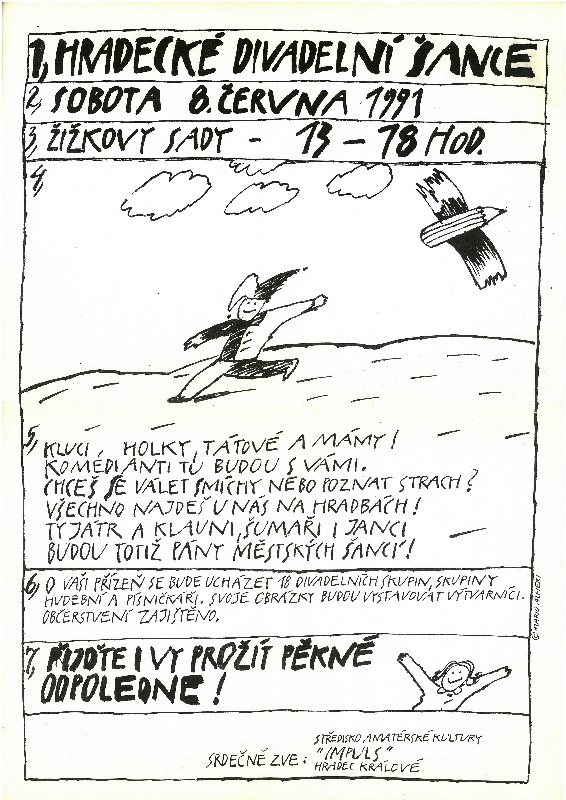 1, HRADECKÉ DIVADELNÍ ŠANCE
2, SOBOTA 8. ČERVNA 1991
3, ŽIŽKOVY SADY - 13 - 18 HOD.
4,
5, KLUCI, HOLKY, TÁTOVÉ A MÁMY!
KOMEDIANTI TU BUDOU S VÁMI.
CHCEŠ SE VÁLET SMÍCHY NEBO POZNAT STRACH?
VŠECHNO NAJDEŠ U NÁS NA HRADBÁCH!
TYJÁTR A KLAUNI, ŠUMAŘI I JANCI
BUDOU TOTIŽ PÁNY MĚSTSKÝCH ŠANCÍ!
6, O VAŠI PŘÍZEŇ SE BUDE UCHÁZET 18 DIVADELNÍCH SKUPIN, SKUPINY
HUDEBNÍ A PÍSNIČKÁŘI. SVOJE OBRÁZKY BUDOU VYSTAVOVAT VÝTVARNÍCI.
OBČERSTVENÍ ZAJIŠTĚNO.
7, PŘIJĎTE I VY PROŽÍT PĚKNÉ
ODPOLEDNE!
SRDEČNĚ ZVE:
STŘEDISKO AMATÉRSKÉ KULTURY
"IMPULS"
HRADEC KRÁLOVÉ